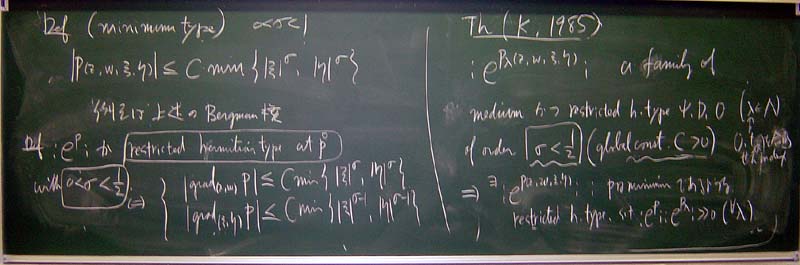 Def (minimum type) 0<σ<1
|P(z,w,ξ,η)| ≤ C min { |ξ|^σ, |η|^σ }
Bergman 核
Def :e^P: が restricted hermitian type at p°
with 0<σ<1/2
⇔ { |grad_(z,w) P| ≤ C min { |ξ|^σ, |η|^σ }
|grad_(ξ,η) P| ≤ C min { |ξ|^(σ-1), |η|^(σ-1) }
Th (K, 1985)
:e^(P_λ(z,w,ξ,η)): a family of
restricted h. type Ψ.D.O (λ∈Λ)
of order σ<1/2 (global const. C>0)
⇒ ∃ :e^(P(z,w,ξ,η)):
restricted h. type. s.t. :e^P::e^(P_λ): >>0 (∀λ)